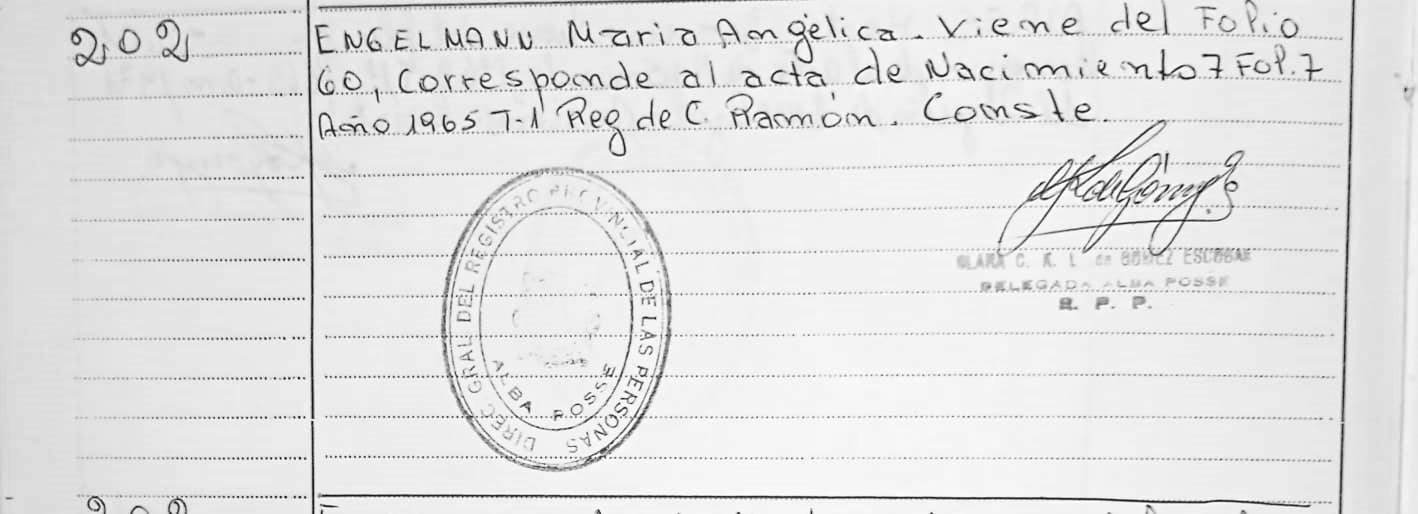 202
ENGELMANN Maria Angèlica. Viene del Folio
60, Corresponde al acta de Nacimiento 7 Fol. 7
Año 1965 T-1 Reg de C. Ramòn. Conste.
DIREC. GRAL. DEL REGISTRO PROVINCIAL DE LAS PERSONAS
ALBA POSSE
CLARA C. K. L. de GOMEZ ESCOBAR
DELEGADA ALBA POSSE
R. P. P.